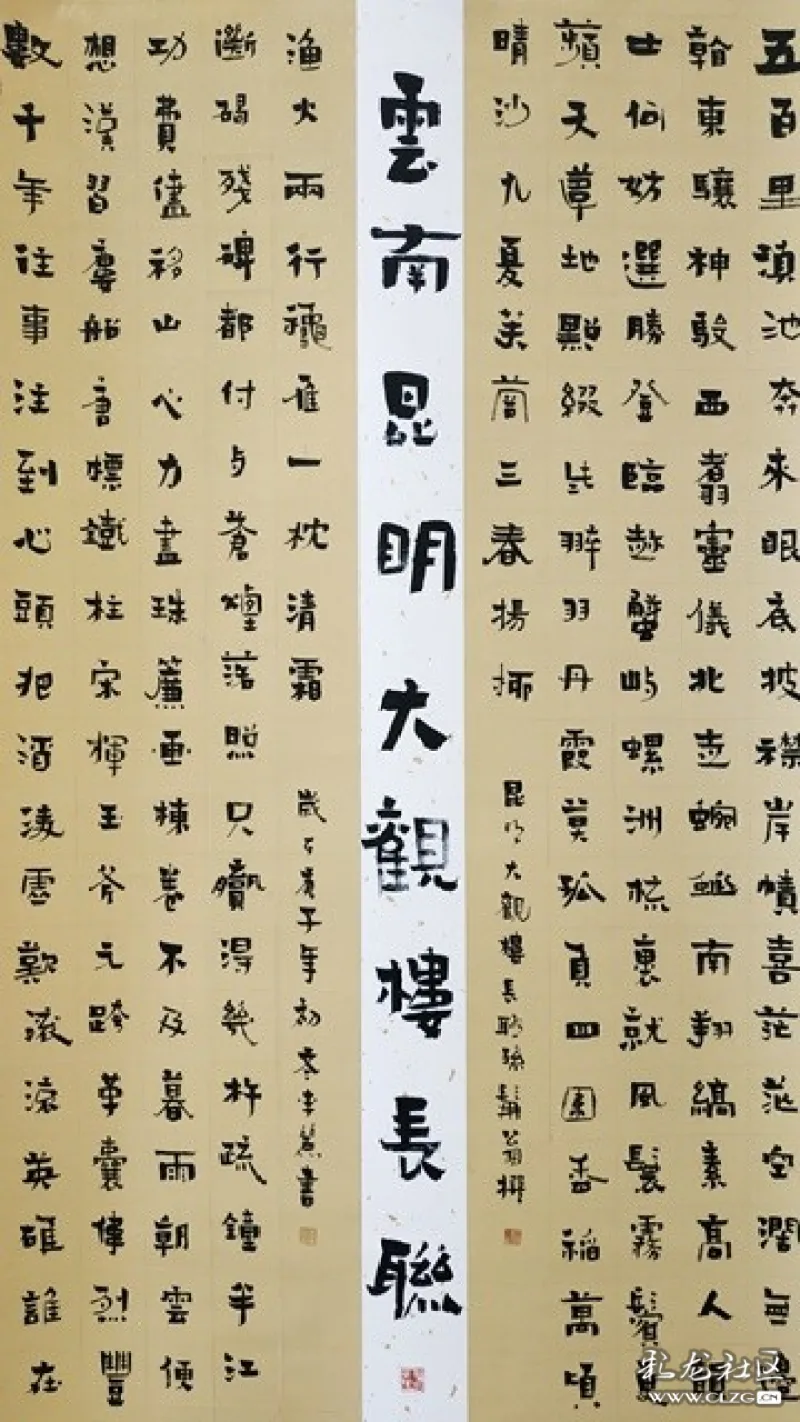 五百里滇池奔來眼底披襟岸幘喜茫茫空濶無邊
看東驤神駿西翥靈儀北走蜿蜒南翔縞素高人韻
士何妨選勝登臨趁蟹嶼螺洲梳裹就風鬟霧鬢更
蘋天葦地點綴些翠羽丹霞莫孤負四圍香稻萬頃
晴沙九夏芙蓉三春楊柳
昆明大觀樓長聯孫髯翁撰
雲南昆明大觀樓長聯
數千年往事注到心頭把酒凌虛歎滾滾英雄誰在
想漢習樓船唐標鐵柱宋揮玉斧元跨革囊偉烈豐
功費儘移山心力盡珠簾畫棟卷不及暮雨朝雲便
斷碣殘碑都付與蒼煙落照只贏得幾杵疏鐘半江
漁火兩行穐雁一枕清霜
庚子年初冬李書
彩龙社区
WWW.CLZG.CN